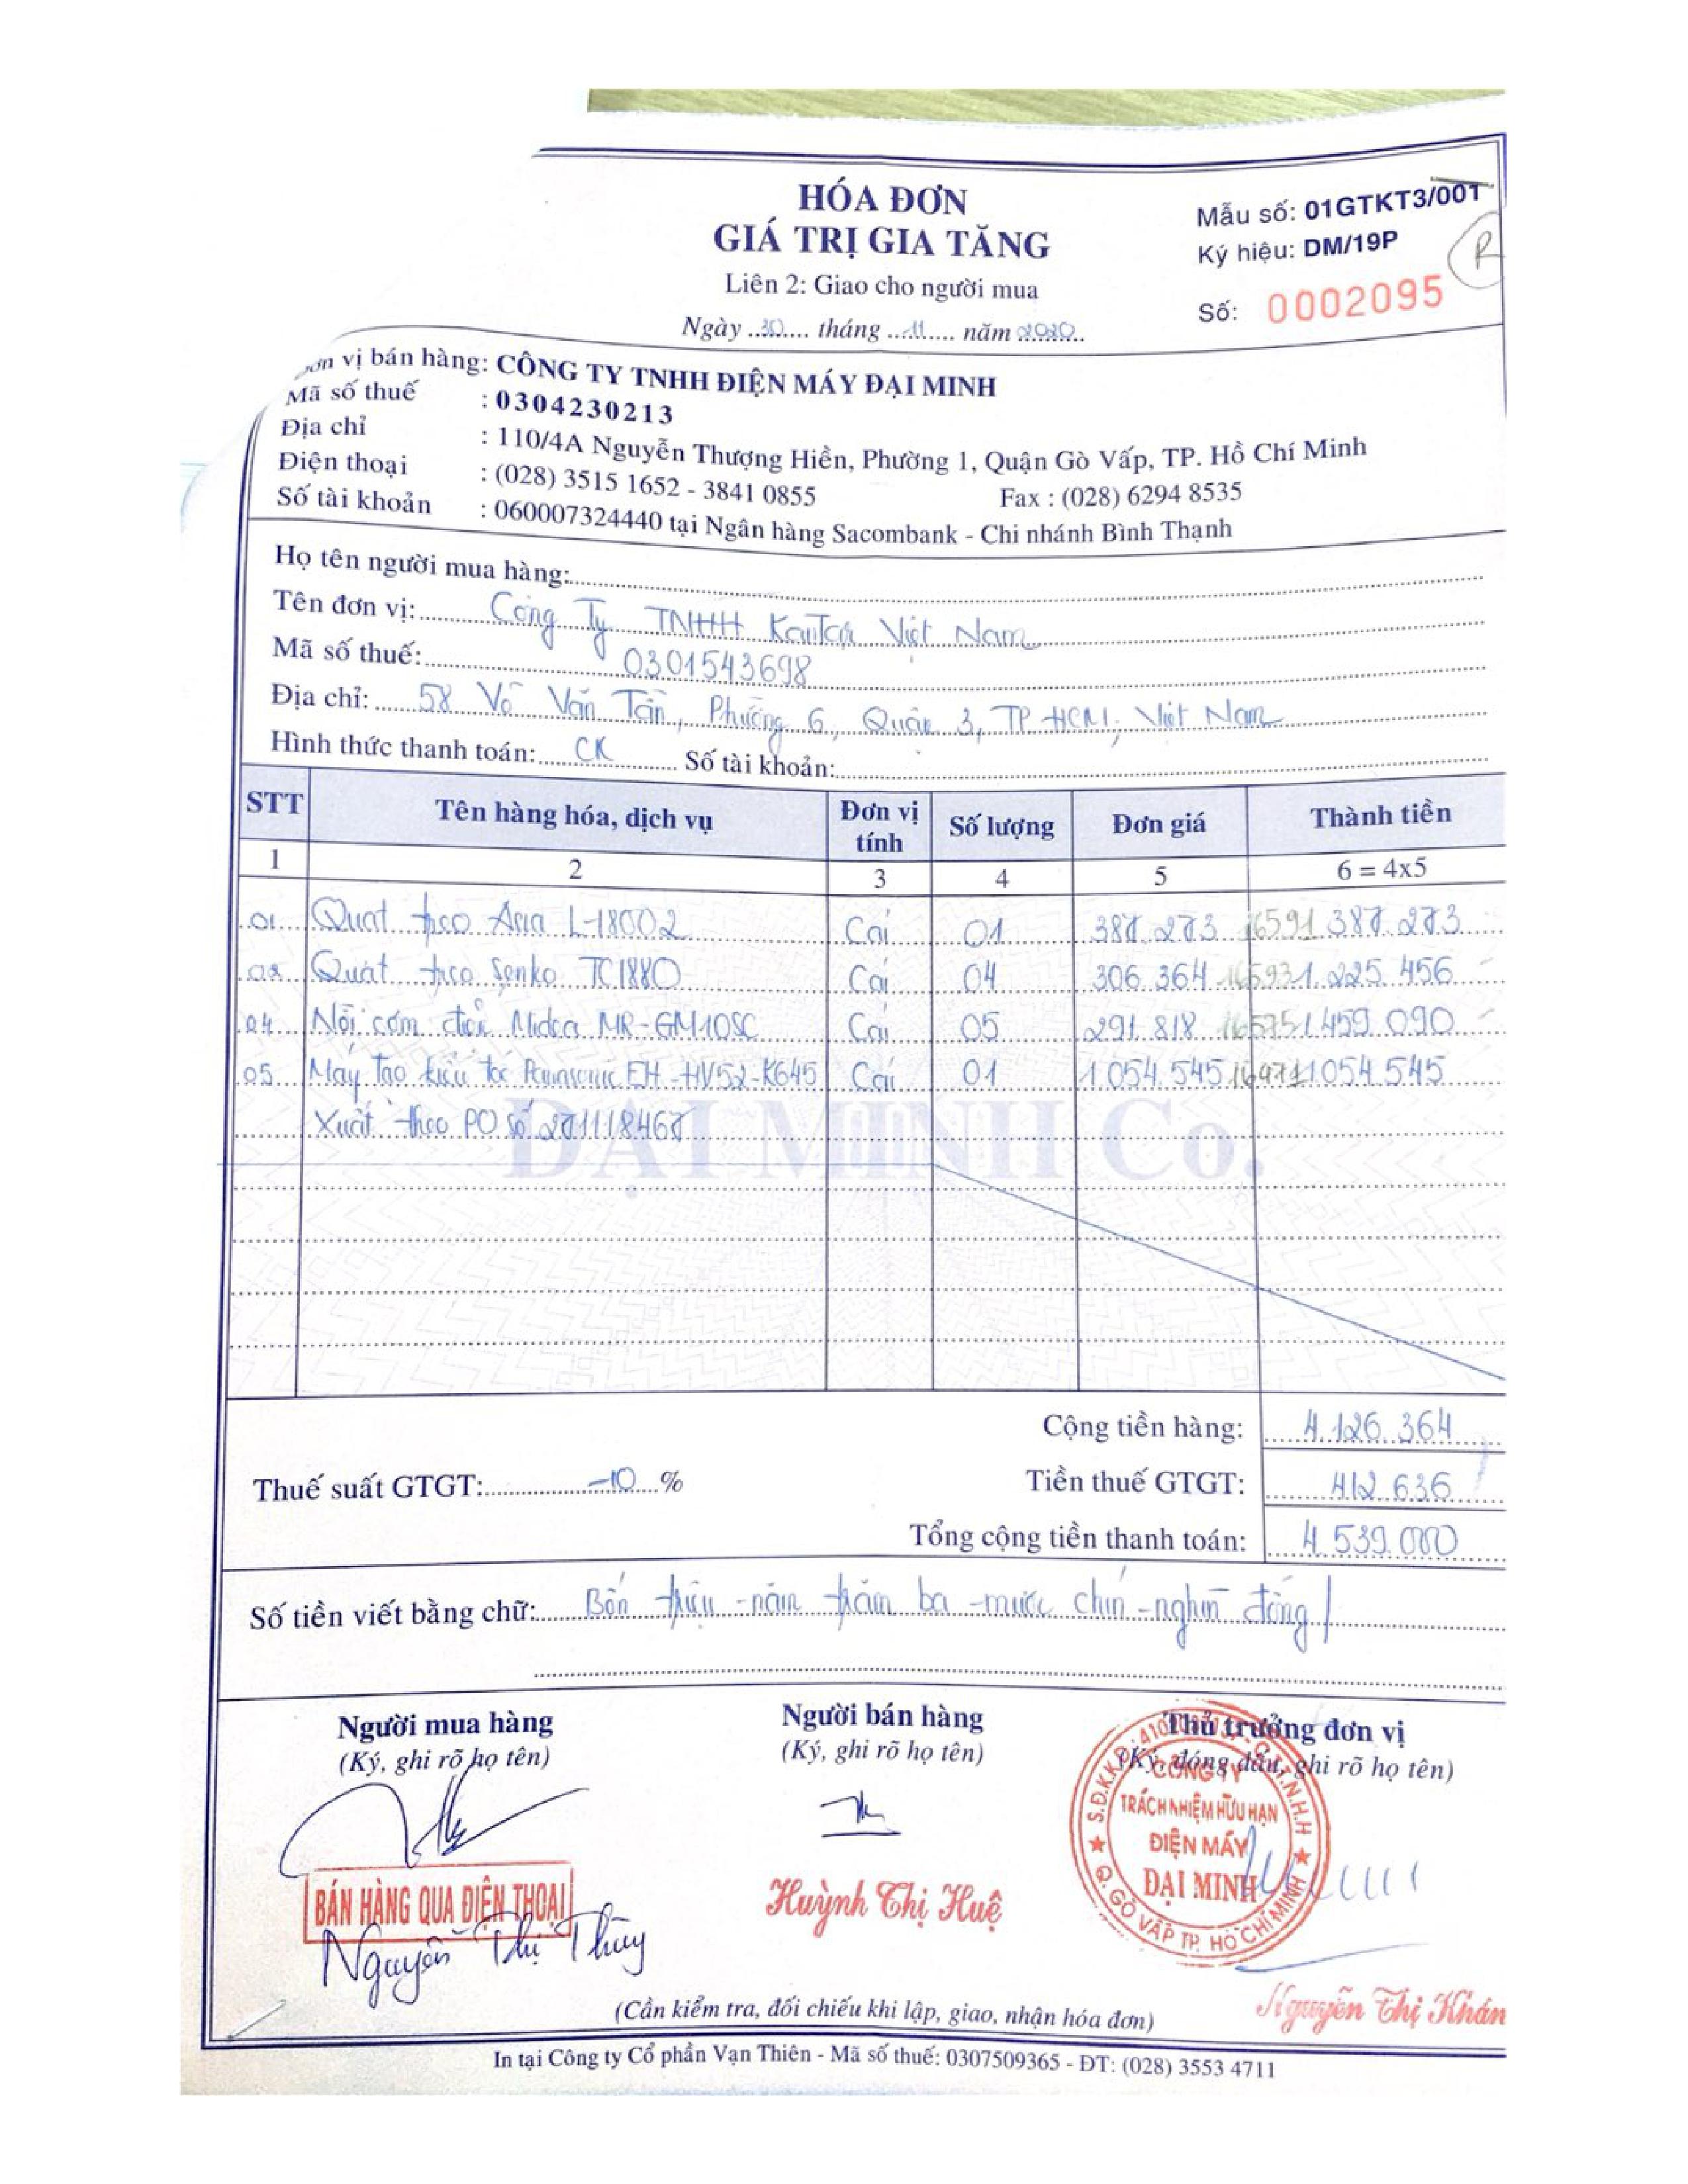 HÓA ĐƠN
GIÁ TRỊ GIA TĂNG
Liên 2: Giao cho người mua
Ngày 30 tháng 11 năm 2020
Mẫu số: 01GTKT3/001
Ký hiệu: DM/19P
R
Số: 0002095
vị bán hàng: CÔNG TY TNHH ĐIỆN MÁY ĐẠI MINH
Mã số thuế : 0304230213
Địa chỉ : 110/4A Nguyễn Thượng Hiền, Phường 1, Quận Gò Vấp, TP. Hồ Chí Minh
Điện thoại : (028) 3515 1652 - 3841 0855 Fax : (028) 6294 8535
Số tài khoản : 060007324440 tại Ngân hàng Sacombank - Chi nhánh Bình Thạnh
Họ tên người mua hàng:
Tên đơn vị: Công Ty TNHH Kantar Việt Nam
Mã số thuế: 0301543698
Địa chỉ: 58 Võ Văn Tần, Phường 6, Quận 3, TP. HCM, Việt Nam
Hình thức thanh toán: CK Số tài khoản:
STT Tên hàng hóa, dịch vụ Đơn vị tính Số lượng Đơn giá Thành tiền
1 2 3 4 5 6 = 4x5
01 Quạt treo Asia L-18002 Cái 01 387.273 16591 387.273
02 Quạt treo Senko TC1880 Cái 04 306.364 16593 1.225.456
04 Nồi cơm điện Midea MR-GM10SC Cái 05 291.818 16575 1.459.090
05 Máy tạo kiểu tóc Panasonic EH-HV52-K645 Cái 01 1.054.545 16971 1.054.545
Xuất theo PO số 271118467
ĐẠI MINH Co.
Cộng tiền hàng: 4.126.364
Thuế suất GTGT: -10 % Tiền thuế GTGT: 412.636
Tổng cộng tiền thanh toán: 4.539.000
Số tiền viết bằng chữ: Bốn triệu năm trăm ba mươi chín nghìn đồng/
Người mua hàng Người bán hàng Thủ trưởng đơn vị
(Ký, ghi rõ họ tên) (Ký, ghi rõ họ tên) (Ký, đóng dấu, ghi rõ họ tên)
CÔNG TY
TRÁCH NHIỆM HỮU HẠN
ĐIỆN MÁY
ĐẠI MINH
Q. GÒ VẤP TP. HỒ CHÍ MINH
BÁN HÀNG QUA ĐIỆN THOẠI
Huỳnh Thị Huệ
Nguyễn Thị Thùy
Nguyễn Thị Khán
(Cần kiểm tra, đối chiếu khi lập, giao, nhận hóa đơn)
In tại Công ty Cổ phần Vạn Thiên - Mã số thuế: 0307509365 - ĐT: (028) 3553 4711